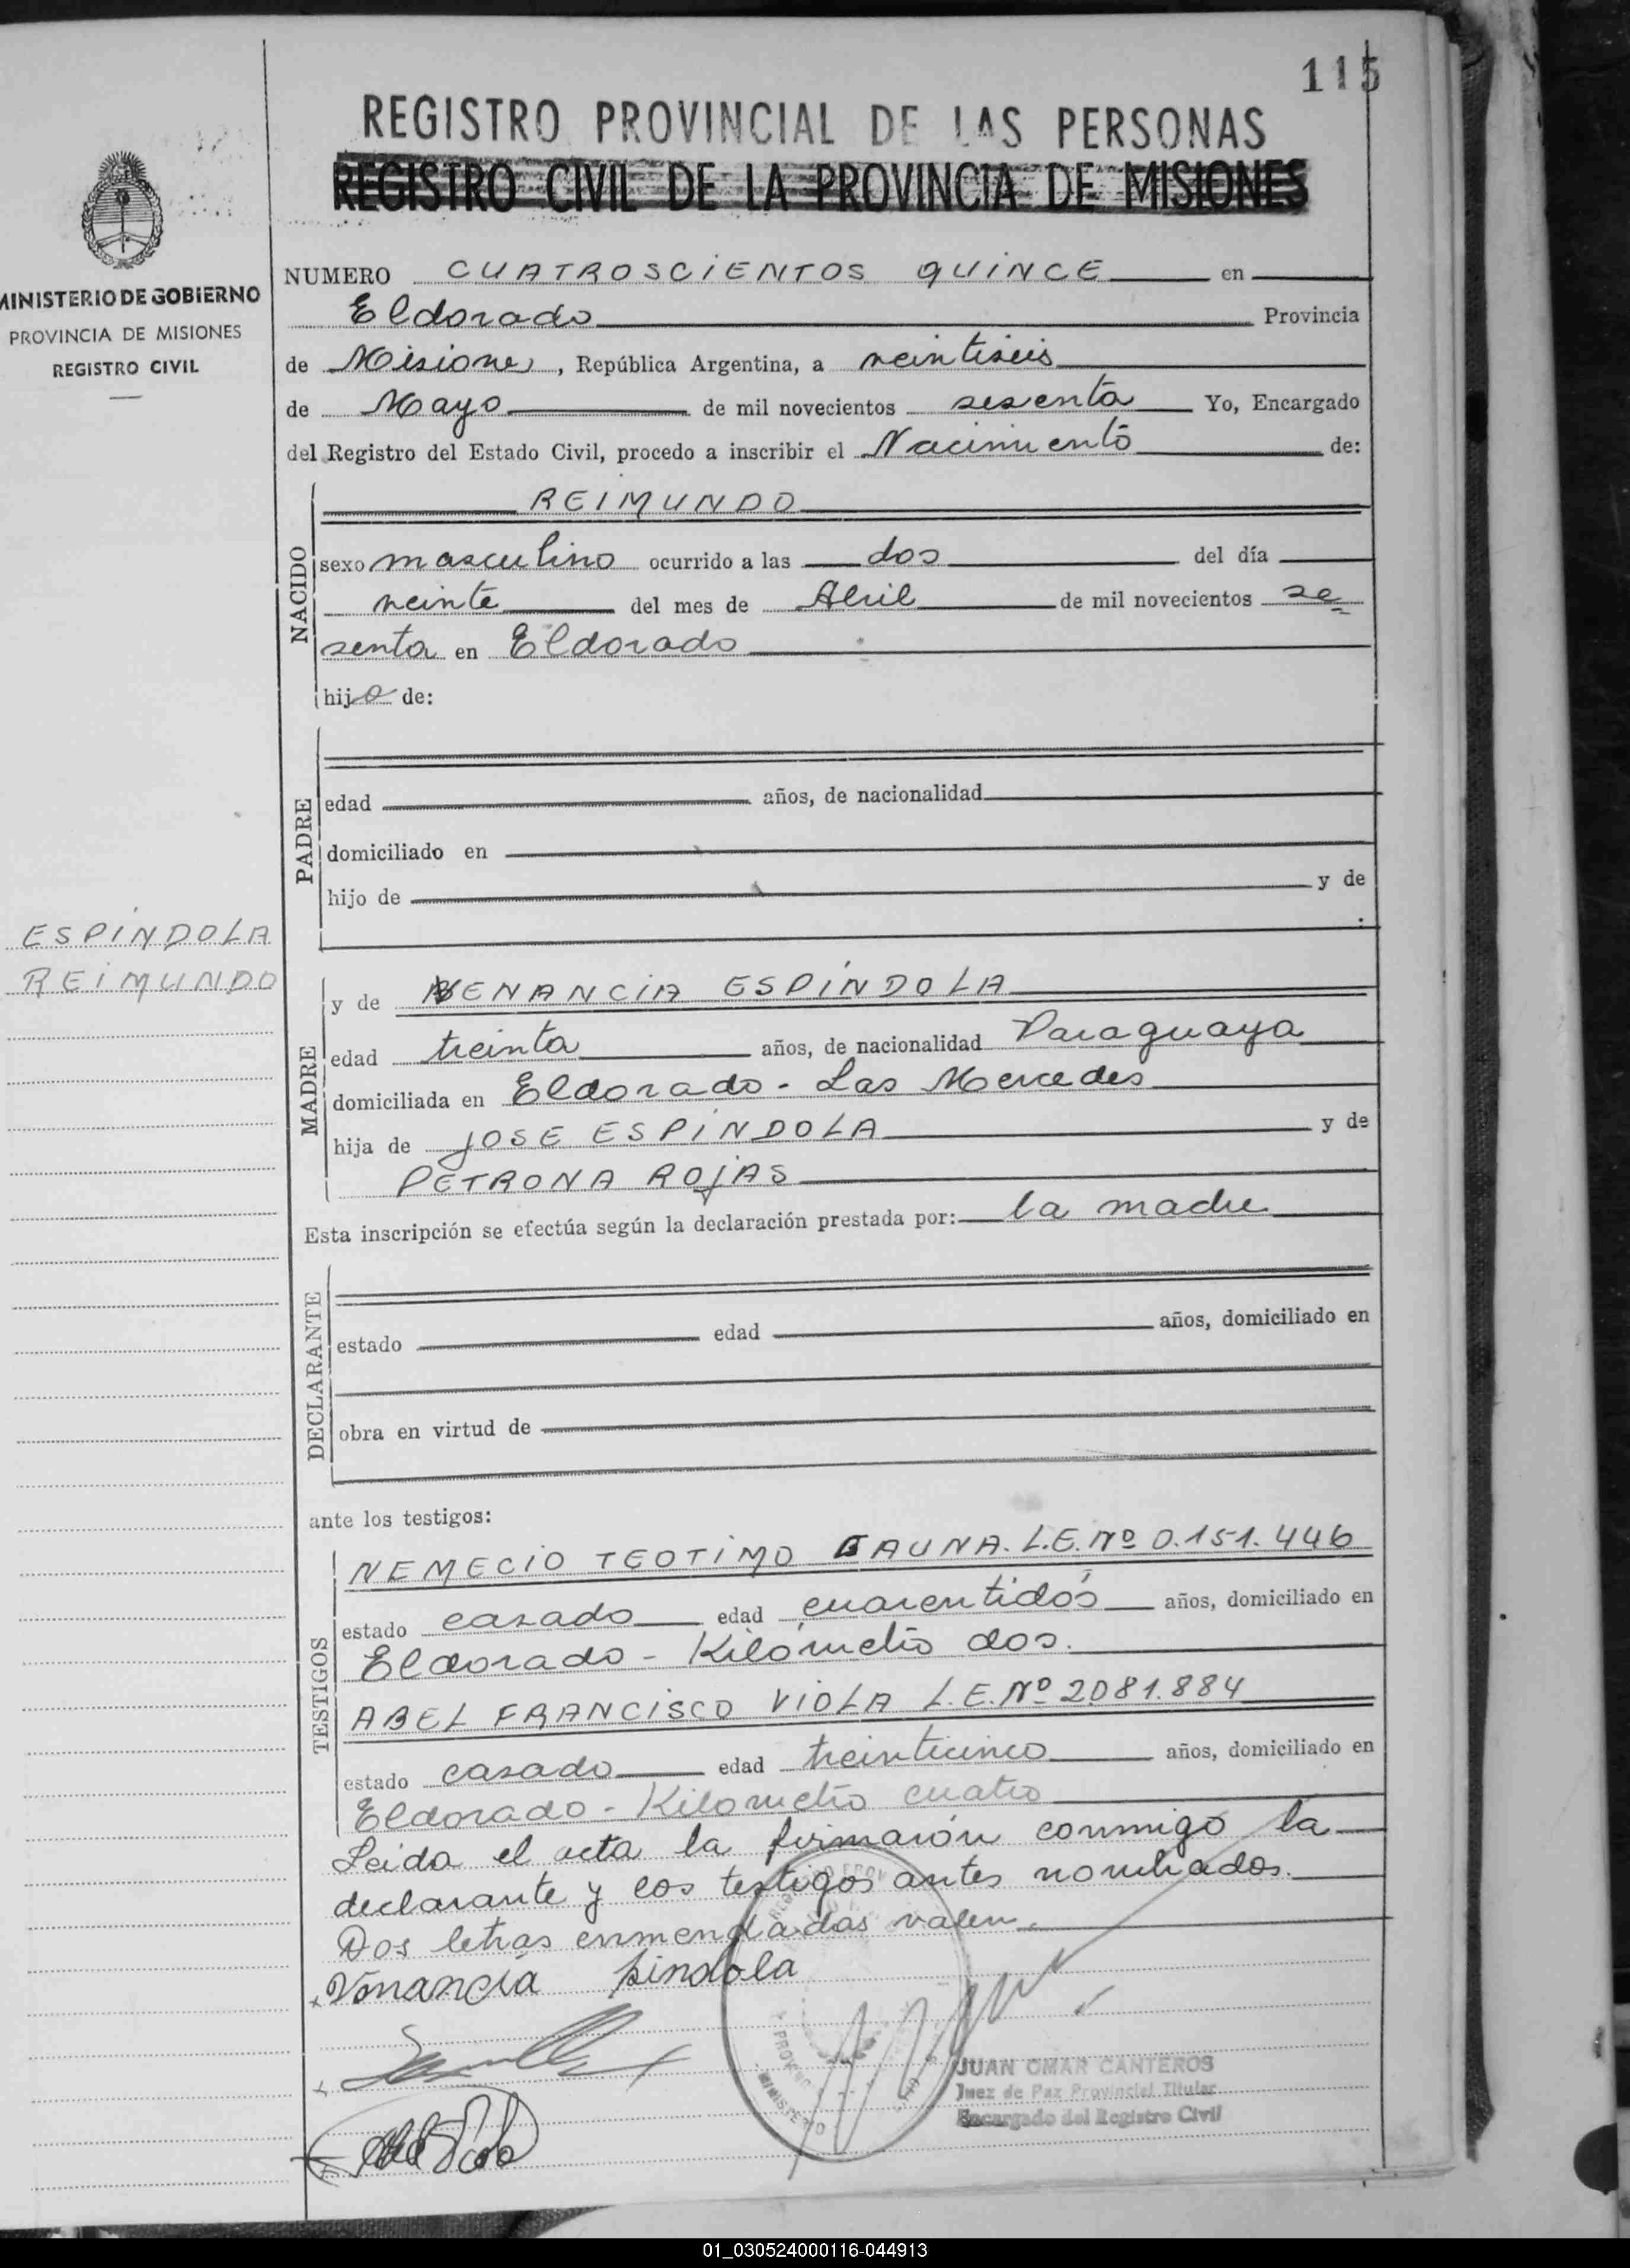 115
REGISTRO PROVINCIAL DE LAS PERSONAS
REGISTRO CIVIL DE LA PROVINCIA DE MISIONES
MINISTERIO DE GOBIERNO
PROVINCIA DE MISIONES
REGISTRO CIVIL
NUMERO CUATROSCIENTOS QUINCE en
Eldorado Provincia
de Misiones, República Argentina, a veintiseis
de Mayo de mil novecientos sesenta Yo, Encargado
del Registro del Estado Civil, procedo a inscribir el Nacimiento de:
NACIDO
REIMUNDO
sexo masculino ocurrido a las dos del día
veinte del mes de Abril de mil novecientos se=
senta en Eldorado
hijo de:
PADRE
edad años, de nacionalidad
domiciliado en
hijo de y de
ESPÍNDOLA
REIMUNDO
MADRE
y de VENANCIA ESPÍNDOLA
edad treinta años, de nacionalidad Paraguaya
domiciliada en Eldorado - Las Mercedes
hija de JOSE ESPÍNDOLA y de
PETRONA ROJAS
Esta inscripción se efectúa según la declaración prestada por: la madre
DECLARANTE
estado edad años, domiciliado en
obra en virtud de
ante los testigos:
TESTIGOS
NEMECIO TEOTIMO GAUNA. L.E. Nº 0.151.446
estado casado edad cuarentidós años, domiciliado en
Eldorado - Kilómetro dos.
ABEL FRANCISCO VIOLA L.E. Nº 2.081.884
estado casado edad treinticinco años, domiciliado en
Eldorado - Kilometro cuatro
Leida el acta la firmaron conmigo la
declarante y los testigos antes nombrados.
Dos letras enmendadas valen.
Venancia pindola
JUAN OMAR CANTEROS
Juez de Paz Provincial Titular
Encargado del Registro Civil
01_030524000116-044913